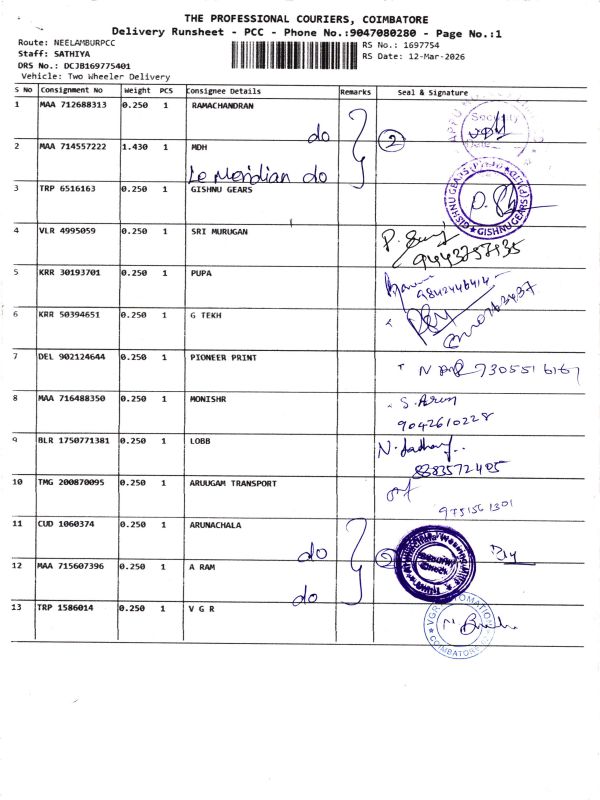 THE PROFESSIONAL COURIERS, COIMBATORE
Delivery Runsheet - PCC - Phone No.:9047080280 - Page No.:1
Route: NEELAMBURPCC
RS No.: 1697754
Staff: SATHIYA
RS Date: 12-Mar-2026
DRS No.: DCJB169775401
Vehicle: Two Wheeler Delivery
S No Consignment No Weight PCS Consignee Details Remarks Seal & Signature
1 MAA 712688313 0.250 1 RAMACHANDRAN
do 2
2 MAA 714557222 1.430 1 MDH
Le Meridian do
3 TRP 6516163 0.250 1 GISHNU GEARS
GISHNU GEARS (P) LTD
4 VLR 4995059 0.250 1 SRI MURUGAN
9443757935
5 KRR 30193701 0.250 1 PUPA
9842446414
6 KRR 50394651 0.250 1 G TEKH
7 DEL 902124644 0.250 1 PIONEER PRINT
7305516167
8 MAA 716488350 0.250 1 MONISHR
S. Arun
9042610228
9 BLR 1750771381 0.250 1 LOBB
8883572405
10 TMG 200870095 0.250 1 ARUUGAM TRANSPORT
9751561301
11 CUD 1060374 0.250 1 ARUNACHALA
do 2
Security Check
12 MAA 715607396 0.250 1 A RAM
do
13 TRP 1586014 0.250 1 V G R
VGR AUTOMATION
COIMBATORE